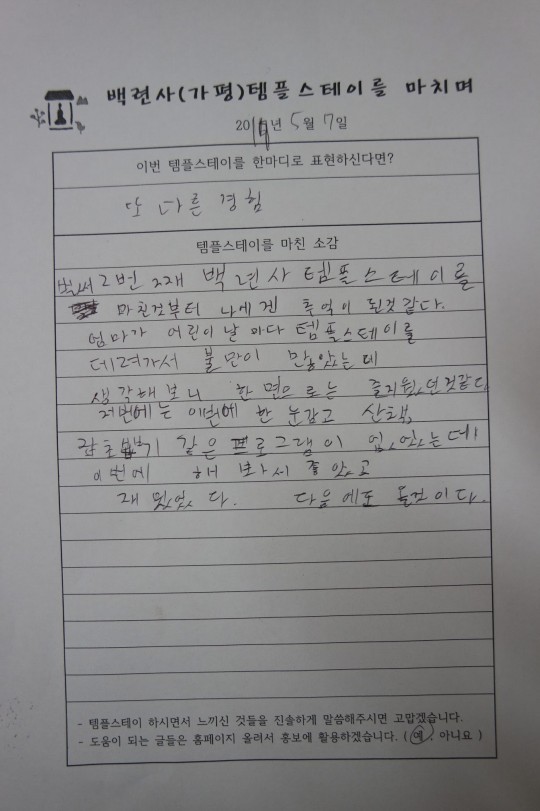 백련사(가평)템플스테이를 마치며
2016년 5월 7일
이번 템플스테이를 한마디로 표현하신다면?
또 다른 경험
템플스테이를 마친 소감
벌써 2번째 백련사 템플스테이를
마친것부터 나에겐 추억이 된것같다.
엄마가 어린이날 마다 템플스테이를
데려가서 불만이 많았는데
생각해보니 한 면으로는 즐거웠던것같다
저번에는 이번에 한 눈감고 산책,
잡초뽑기 같은 프로그램이 없었는데
이번에 해 봐서 좋았고
재밌었다. 다음에도 올것이다.
- 템플스테이 하시면서 느끼신 것들을 진솔하게 말씀해주시면 고맙겠습니다.
- 도움이 되는 글들은 홈페이지 올려서 홍보에 활용하겠습니다. ( 예 , 아니요 )